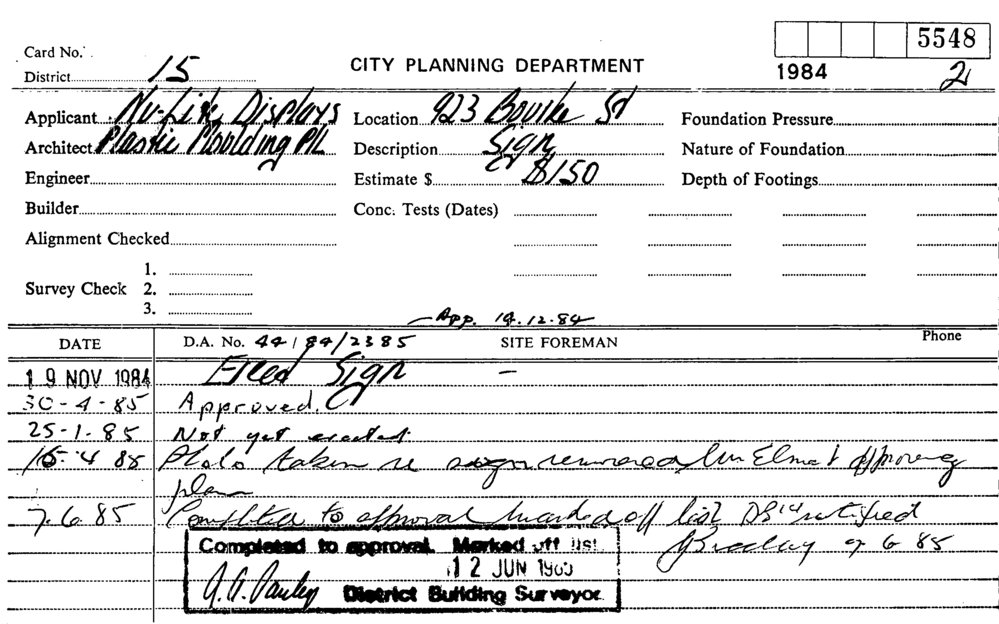 5548
Card No.
District 15
CITY PLANNING DEPARTMENT
1984 2
Applicant Nu-Lite Displays Location 923 Bourke St Foundation Pressure
Architect Plastic Moulding P/L Description Sign Nature of Foundation
Engineer Estimate $ $150 Depth of Footings
Builder Conc. Tests (Dates)
Alignment Checked
1.
Survey Check 2.
3.
App. 19.12.84
DATE D.A. No. 44/84/2385 SITE FOREMAN Phone
19 NOV 1984 Erect Sign -
30-4-85 Approved.
25-1-85 Not yet erected.
4 85 Photo taken re
plan
7.6.85 Completed to approval marked off list notified
Completed to approval. Marked off list.
Bradley 9 6 85
12 JUN 1985
District Building Surveyor.